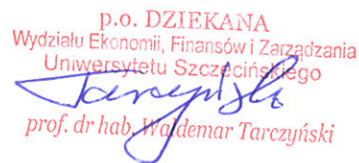 p.o. DZIEKANA
Wydziału Ekonomii, Finansów i Zarządzania
Uniwersytetu Szczecińskiego
Tarczyński
prof. dr hab. Waldemar Tarczyński